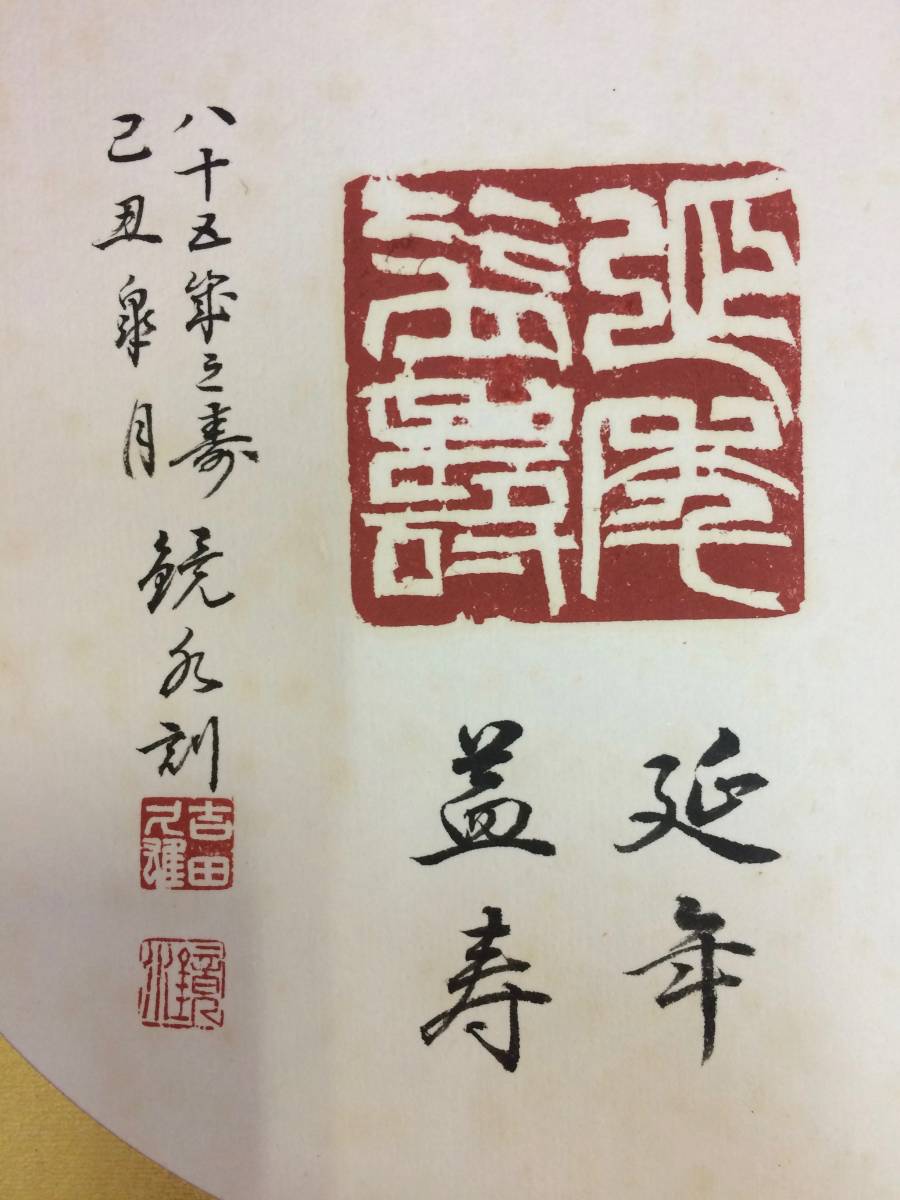 延年
益壽
延年
益寿
八十五歳之寿
己丑皐月
鏡水刻
吉田
雄
鏡水